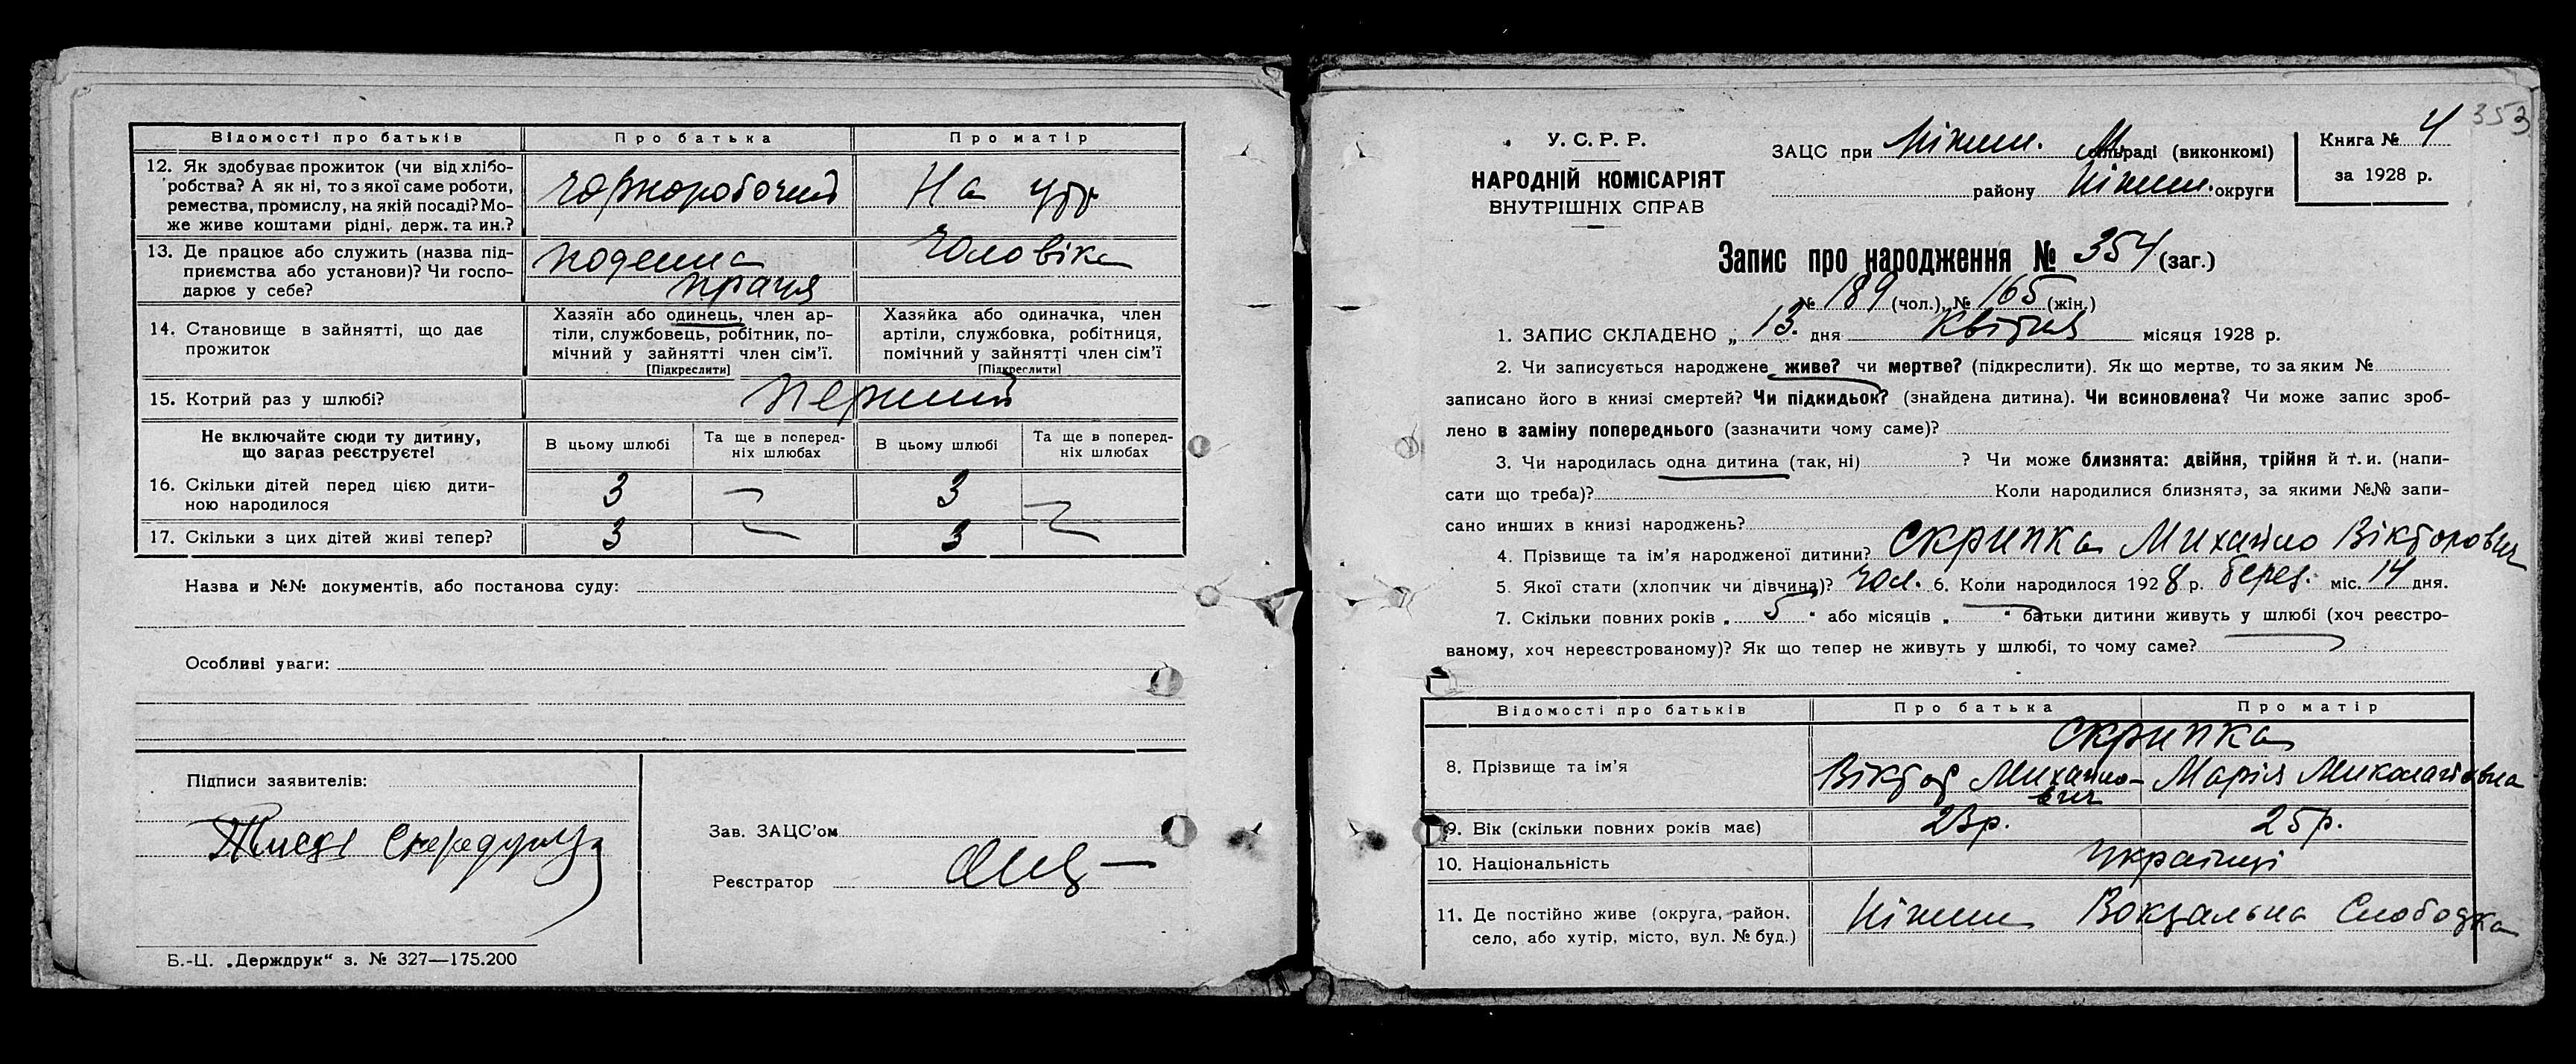 Відомості про батьків Про батька Про матір
12. Як здобуває прожиток (чи від хлібо-
робства? А як ні, то з якої саме роботи,
ремества, промислу, на якій посаді? Мо-
же живе коштами рідні, держ. та ин.?
чорноробочий На утр.
13. Де працює або служить (назва під-
приємства або установи)? Чи госпо-
дарює у себе?
поденна чоловіка
праця
14. Становище в зайнятті, що дає
прожиток
Хазяїн або одинець, член ар-
тіли, службовець, робітник, по-
мічний у зайнятті член сім'ї.
[Підкреслити]
Хазяйка або одиначка, член
артіли, службовка, робітниця,
помічний у зайнятті член сім'ї
[Підкреслити]
15. Котрий раз у шлюбі? перший
Не включайте сюди ту дитину,
що зараз реєструєте!
В цьому шлюбі Та ще в поперед-
ніх шлюбах В цьому шлюбі Та ще в поперед-
ніх шлюбах
16. Скільки дітей перед цією дити-
ною народилося 3 — 3 —
17. Скільки з цих дітей живі тепер? 3 — 3 —
Назва и №№ документів, або постанова суду:
Особливі уваги:
Підписи заявителів:
Зав. ЗАЦС'ом
Реєстратор
Б.-Ц. „Держдрук“ з. № 327—175.200
353
У. С. Р. Р.
НАРОДНІЙ КОМІСАРІЯТ
ВНУТРІШНІХ СПРАВ
ЗАЦС при Ніжин. М. раді (виконкомі)
району Ніжин. округи
Книга № 4
за 1928 р.
Запис про народження № 354 (заг.)
№ 189 (чол.), № 165 (жін.)
1. ЗАПИС СКЛАДЕНО „ 13. дня Квітня місяця 1928 р.
2. Чи записується народжене живе? чи мертве? (підкреслити). Як що мертве, то за яким №
записано його в книзі смертей? Чи підкидьок? (знайдена дитина). Чи всиновлена? Чи може запис зроб-
лено в заміну попереднього (зазначити чому саме)?
3. Чи народилась одна дитина (так, ні) ? Чи може близнята: двійня, трійня й т. и. (напи-
сати що треба)? Коли народилися близнята, за якими №№ запи-
сано инших в книзі народжень?
4. Прізвище та ім'я народженої дитини? Скрипка Михайло Вікторович
5. Якої стати (хлопчик чи дівчина)? чол. 6. Коли народилося 1928 р. берез. міс. 14 дня.
7. Скільки повних років „ 5 “ або місяців „ — “ батьки дитини живуть у шлюбі (хоч реєстро-
ваному, хоч нереєстрованому)? Як що тепер не живуть у шлюбі, то чому саме? —
Відомості про батьків Про батька Про матір
Скрипка
8. Прізвище та ім'я Віктор Михайло-
вич Марія Миколаївна
9. Вік (скільки повних років має) 23р. 25р.
10. Національність українці
11. Де постійно живе (округа, район,
село, або хутір, місто, вул. № буд.)
Ніжин Вокзальна Слободка